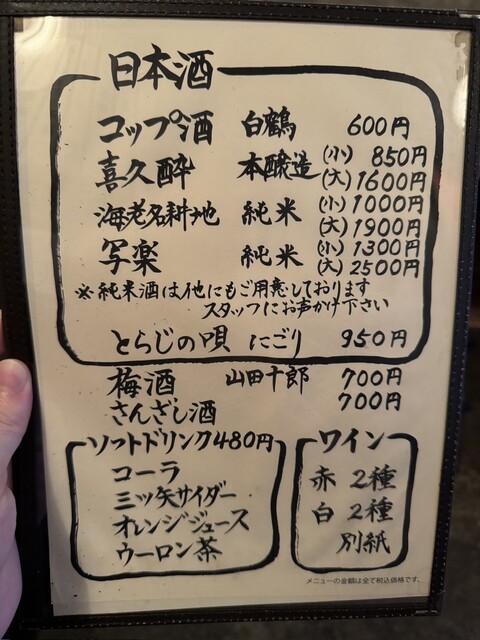 日本酒
コップ酒 白鶴 600円
喜久酔 本醸造 (小) 850円
(大) 1600円
海老名耕地 純米 (小) 1000円
(大) 1900円
写楽 純米 (小) 1300円
(大) 2500円
※純米酒は他にもご用意しております
スタッフにお声がけ下さい
とらじの唄 にごり 950円
梅酒 山田十郎 700円
さんざし酒 700円
ソフトドリンク480円
コーラ
三ッ矢サイダー
オレンジジュース
ウーロン茶
ワイン
赤 2種
白 2種
別紙
メニューの金額は全て税込価格です。